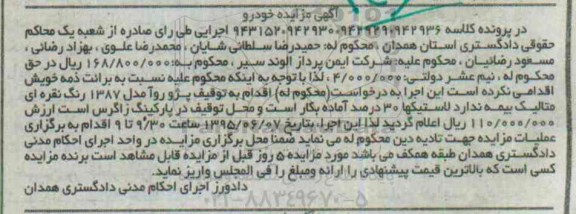 آگهی مزایده خودرو
در پرونده کلاسه ۹۴۲۹۳۶-۹۴۲۹۲۹-۹۴۲۹۳۰-۹۴۳۱۵۲ اجرایی طی رای صادره از شعبه یک محاکم
حقوقی دادگستری استان همدان ، محکوم له: حمیدرضا سلطانی شایان ، محمدرضا علوی ، بهزاد رضائی ،
مسعود رضائیان ، محکوم علیه: شرکت ایمن پرداز الوند سیر ، محکوم به: ۱۶۸/۸۰۰/۰۰۰ ریال در حق
محکوم له ، نیم عشر دولتی: ۴/۰۰۰/۰۰۰ ، لذا با توجه به اینکه محکوم علیه نسبت به برائت ذمه خویش
اقدامی نکرده است این اجرا به درخواست(محکوم له) اقدام به توقیف پژو روآ مدل ۱۳۸۷ رنگ نقره ای
متالیک بیمه ندارد لاستیکها ۳۰ درصد آماده بکار است و محل توقیف در پارکینگ زاگرس است ارزش
۱۱۰/۰۰۰/۰۰۰ ریال اعلام گردید لذا این اجرا، بتاریخ ۱۳۹۵/۰۶/۰۷ ساعت ۹/۳۰ تا ۹ اقدام به برگزاری
عملیات مزایده جهت تادیه دین محکوم له می نماید ضمنا محل برگزاری مزایده در واحد اجرای احکام مدنی
دادگستری همدان طبقه همکف می باشد مورد مزایده ۵ روز قبل از مزایده قابل مشاهده است برنده مزایده
کسی است که بالاترین قیمت پیشنهادی را ارائه ومبلغ را فی المجلس واریز نماید.
دادورز اجرای احکام مدنی دادگستری همدان
۰۲۱-۸۸۳۴۹۶۷۰-۵